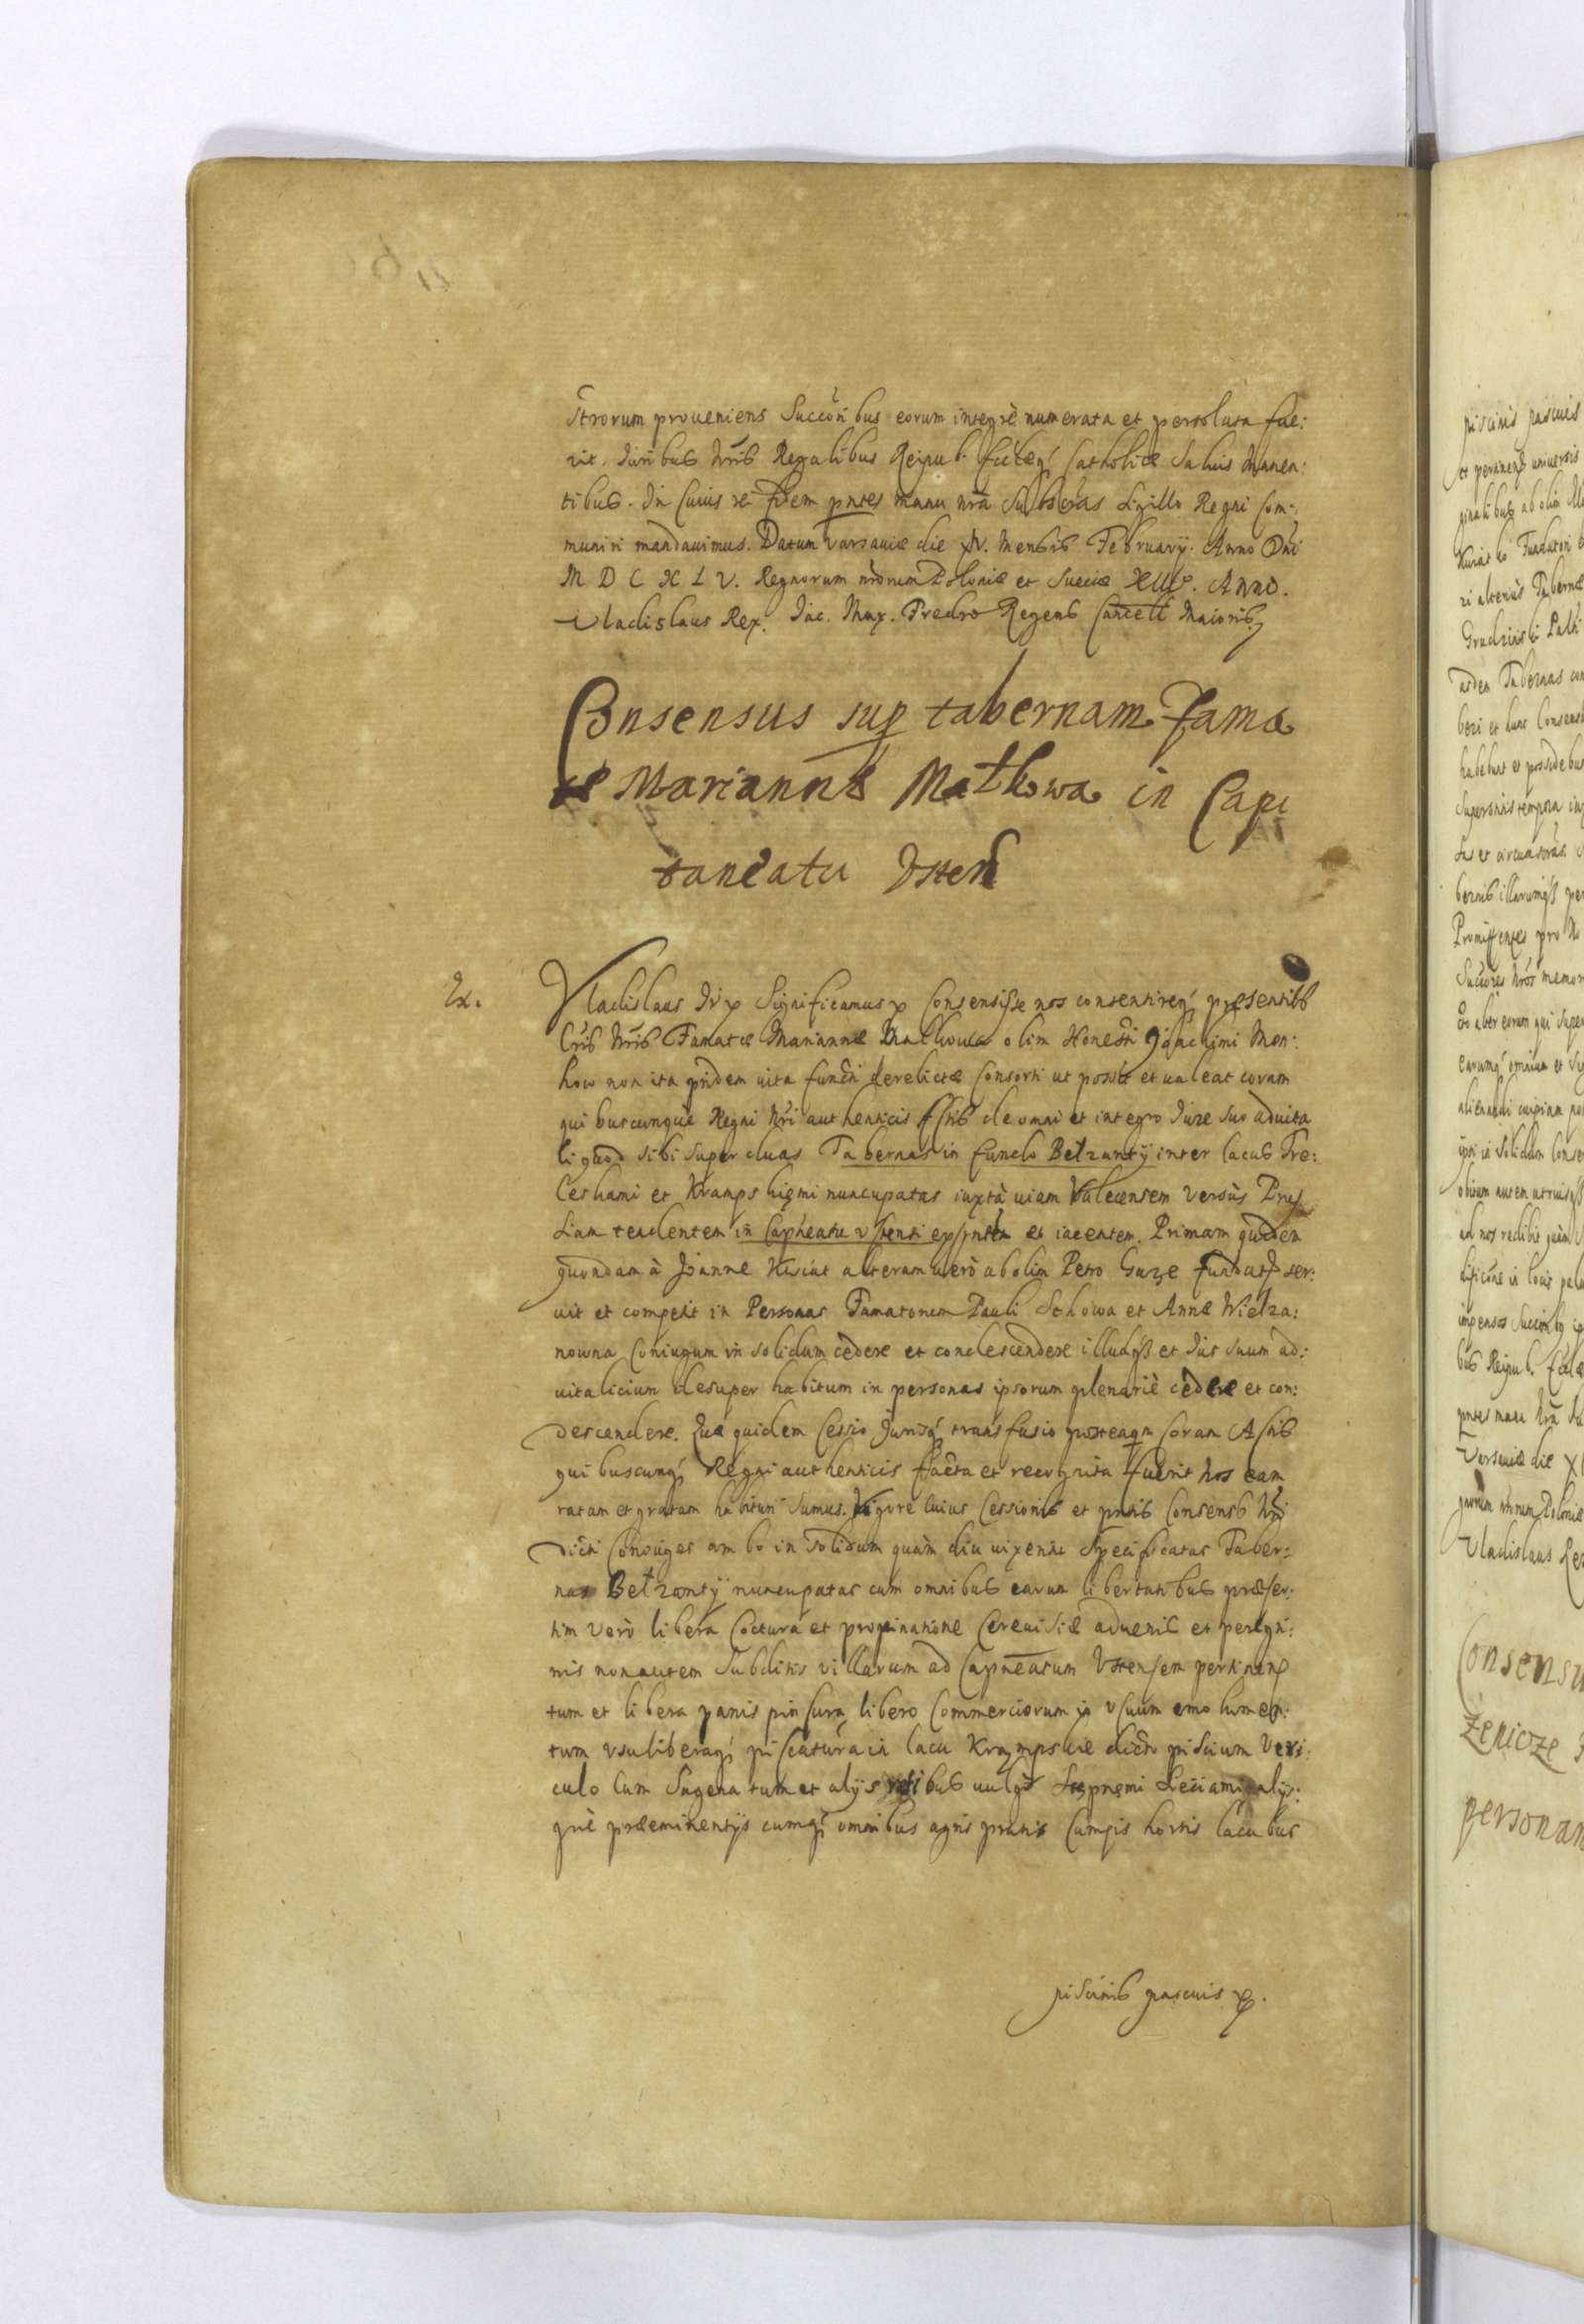 strorum proueniens Succôribus eorum integrè numerata et persoluta fue:
rit. Iuribus Nris Regalibus Reipub. Ecclaeq́ Catholicae Saluis Manen:
tibus. In Cuius rei fidem pntes manu nrã Subscrâs Sigillo Regni Com:
muniri mandauimus. Datum Varsauiae die XV. Mensis February. Anno Dni
M D C X L V. Regnorum nrorum Poloniae et Sueciae XIII. Anno.
Vladislaus Rex. Iac. Max. Fredro Regens Cancell Maioris
Consensus sup tabernam Fama
tae Mariannae Matkowa in Capi
taneatu Usten
Ex.
Vladislaus IV Significamus Consensisse nos consentireq́ praesentibs
Lris Nris Famatae Mariannae Mathowa olim Honesti Joachimi Mon:
kow non ita pridem uita functi derelictae Consorti ut possit et ualeat coram
quibuscunque Regni Nri authenticis Actis de omni et integro Iure suo aduita
li quod sibi super duas Tabernas in fundo Betzanty inter lacus Tre:
leskami et Krampskiemi nuncupatas iuxtà uiam Valecensem versùs Prus
siam tendentem in Capneatu Ustensi exsnten et iacentem. Primam quidem
quondam à Joanne Kiciat alteram uerò ab olim Petro Guze fundat ser:
uit et competit in Personas Famatorum Pauli Sehowa et Annae Wielza:
nowna Coniugum in solidum cedere et condescendere illudqs et Ius suum ad:
uitalicium desuper habitum in personas ipsorum plenariè cedere et con:
descendere. Quae quidem Cessio Iurisq́ transfusio posteaqm Coram Actis
quibuscunq́ Regni authenticis facta et recognita fuerit nos eam
ratam et gratam habituri sumus. Vigore cuius Cessionis et pntis Consens Nri
dicti Coniuges ambo in solidum quàm diu uixerint Specificatas Taber:
nas Betzanty nuncupatas cum omnibus earum libertatibus praeser:
tim verò libera Coctura et propinatione Cereuisiae aduenis et peregri:
nis non autem Subditis villarum ad Capneatum Ustensem pertinen
tum et libera panis pinsura, libero Commerciorum in usuum emolumen:
tum usu liberaq́ piscatura in lacu Krampskie dicto piscium Veri:
culo Cum Sagena tum et alys retibus uulgò Stepnemi Sieciami alys:
què praeeminentys cumq́ omnibus agris pratis Campis hortis lacubus
piscinis pascuis